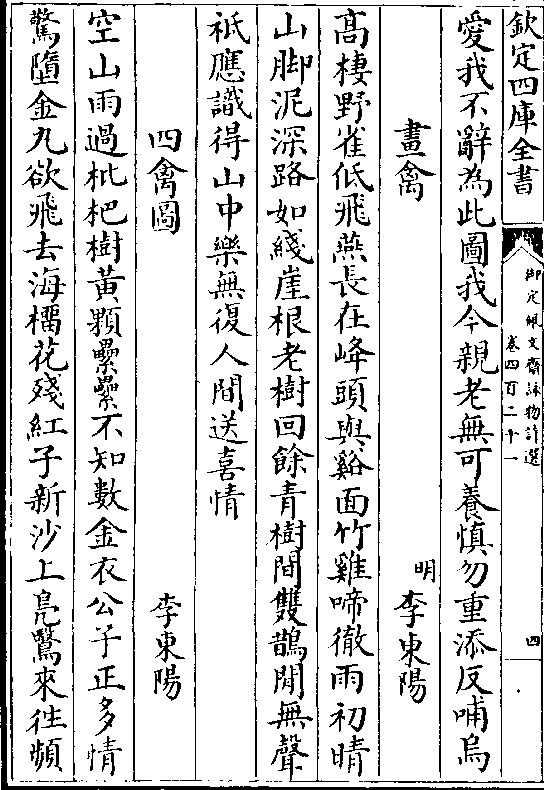 欽定四庫全書
御定佩文齋詠物詩選
卷四百二十一
四
愛我不辭為此圖我今親老無可養慎勿重添反哺烏
畫禽
明李東陽
高棲野雀低飛燕長在峰頭與谿面竹雞啼徹雨初晴
山腳泥深路如綫崖根老樹回餘青樹間雙鵲閒無聲
祇應識得山中樂無復人間送喜情
四禽圖
李東陽
空山雨過枇杷樹黃顆纍纍不知數金衣公子正多情
驚墮金丸欲飛去海榴花殘紅子新沙上鳧鷖來往頻